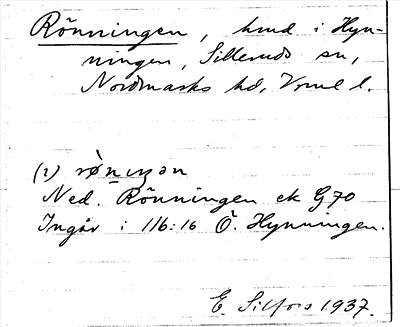 Rönningen, hmd i Hyn-
ningen, Silleruds sn,
Nordmarks hd, Vrml l.
(2) rø̀nıŋən
Ned. Rönningen ek G 70
Ingår i 116:16 Ö. Hynningen.
E. Silfors 1937.